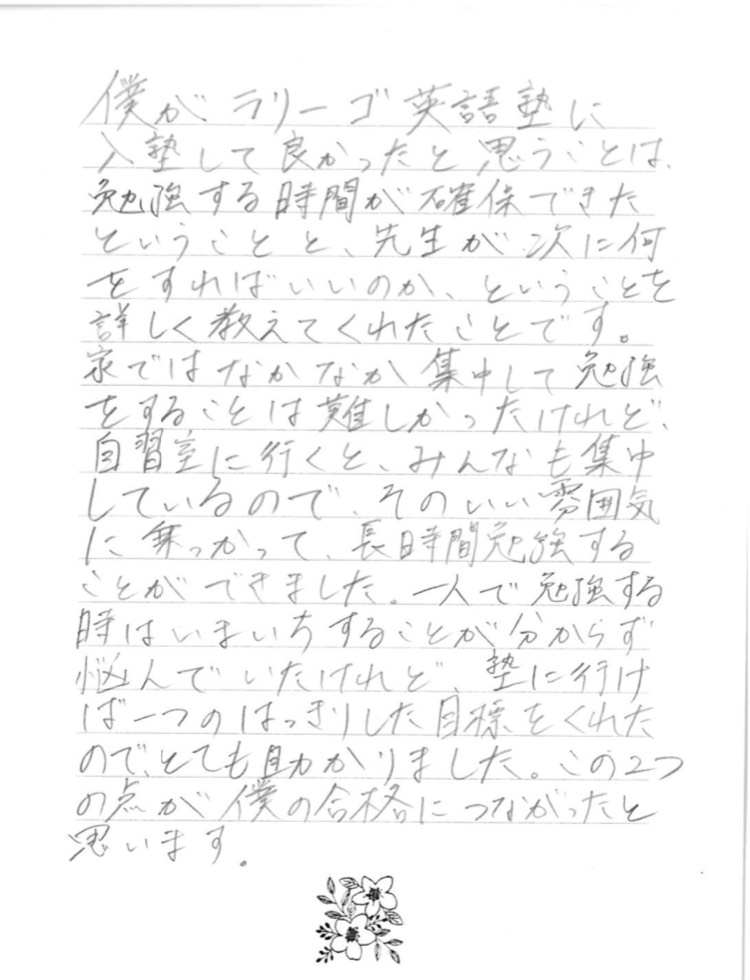 僕がラリーゴ英語塾に
入塾して良かったと思うことは、
勉強する時間が確保できた
ということと、先生が次に何
をすればいいのか、ということを
詳しく教えてくれたことです。
家ではなかなか集中して勉強
をすることは難しかったけれど、
自習室に行くと、みんなも集中
しているので、そのいい雰囲気
に乗っかって、長時間勉強する
ことができました。一人で勉強する
時はいまいちすることが分からず
悩んでいたけれど、塾に行け
ば一つのはっきりした目標をくれた
ので、とても助かりました。この2つ
の点が僕の合格につながったと
思います。